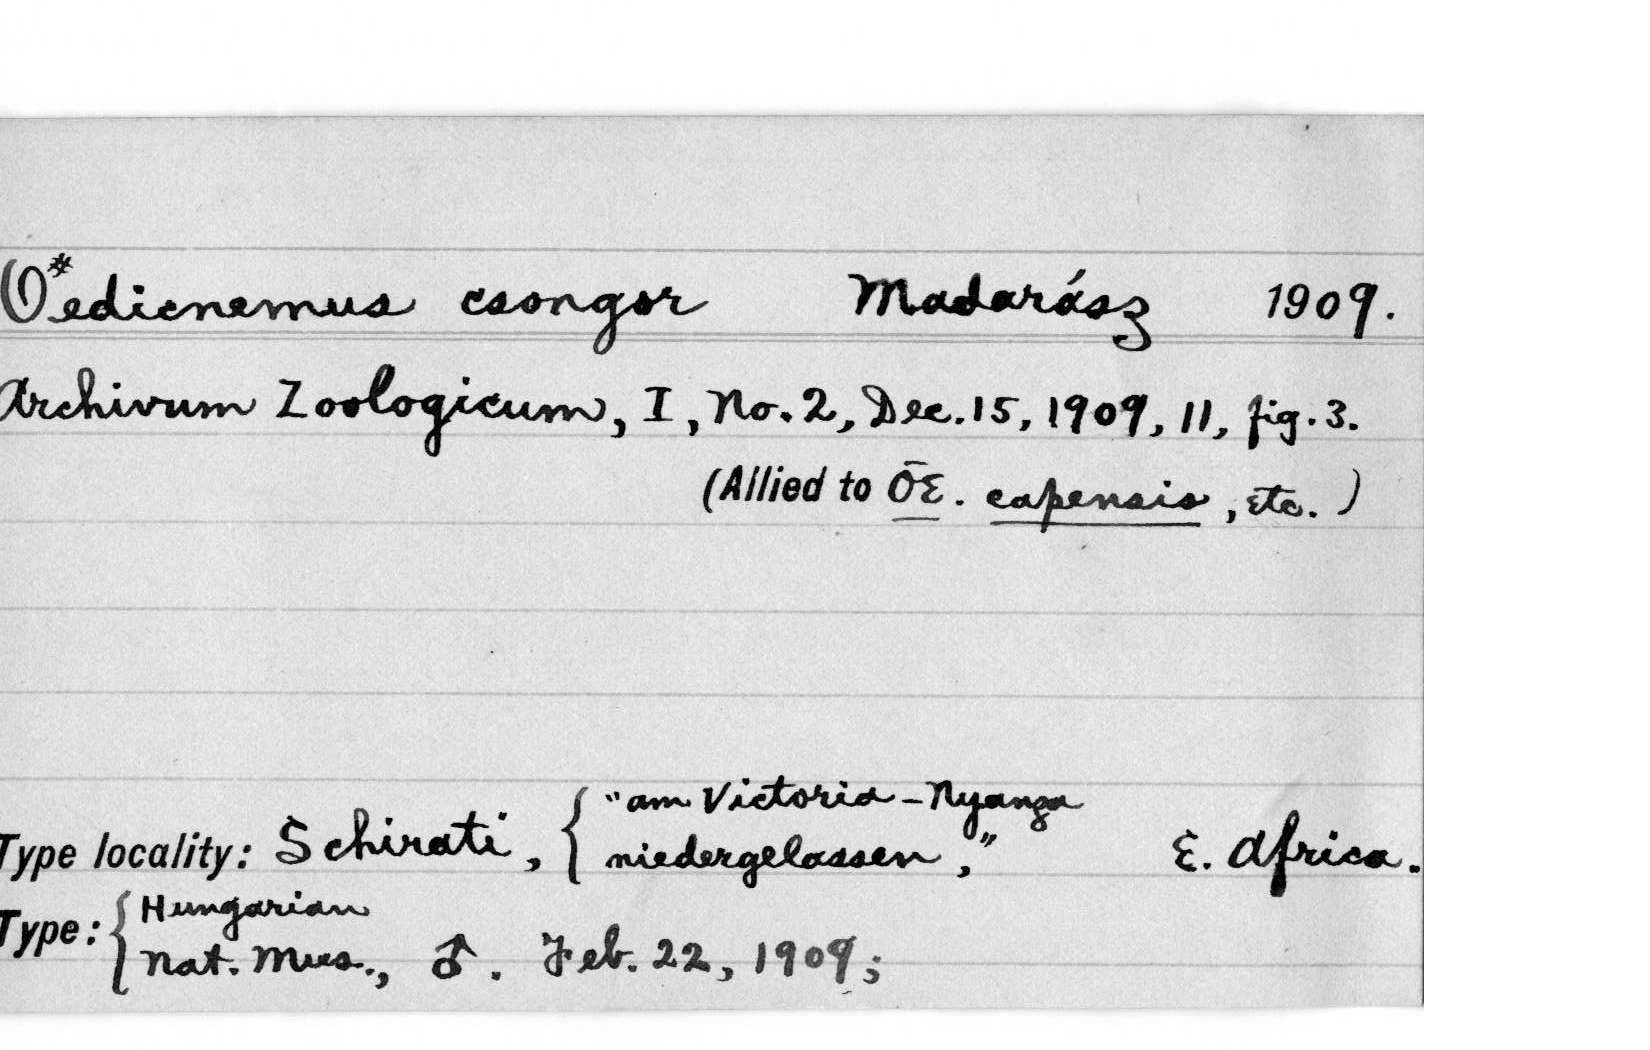 O*edicnemus csongor Madarász 1909.
Archivum Zoologicum, I, No. 2, Dec. 15, 1909, 11, fig. 3.
(Allied to ŌE. capensis, etc.)
Type locality: Schirati, { "am Victoria-Nyanza
niedergelassen," E. Africa.
Type: { Hungarian
Nat. Mus., ♂. Feb. 22, 1909;